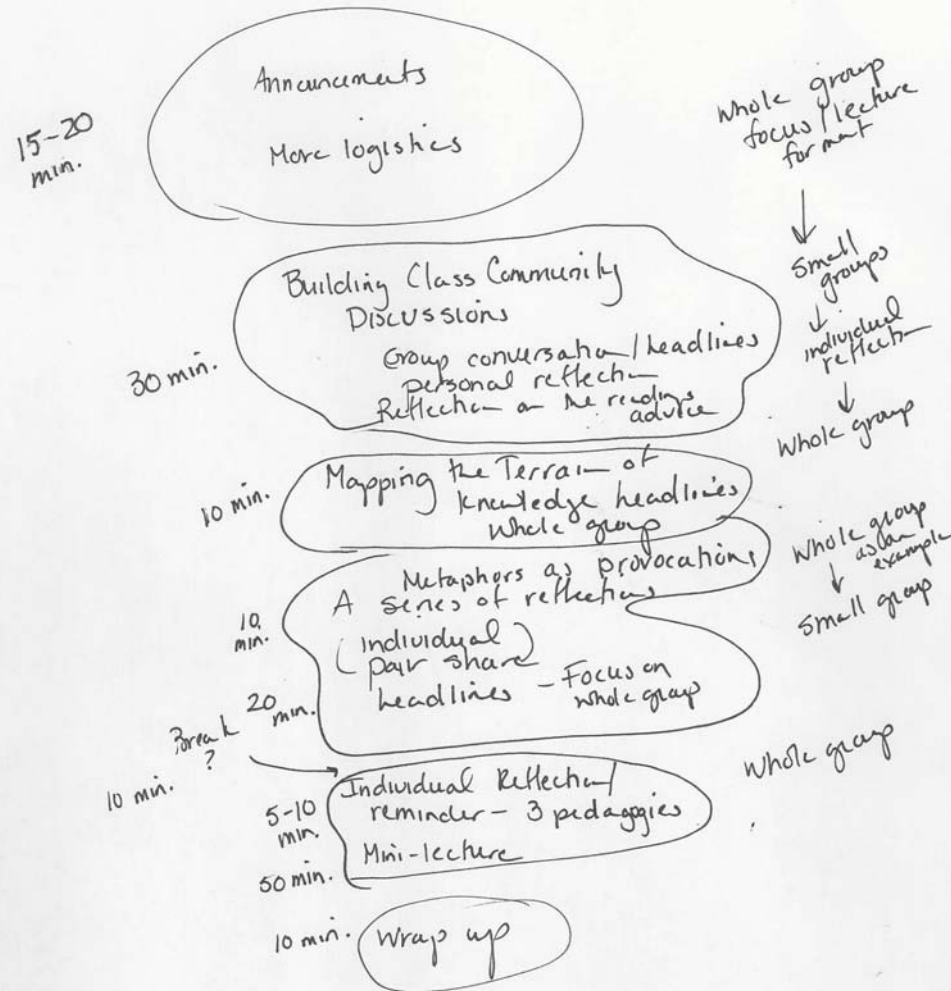 Announcements
More logistics
15-20
min.
Whole group
focus/lecture
format
Small
groups
individual
reflection
Whole group
Building Class Community
Discussions
Group conversation/headlines
personal reflection
Reflection on the readings
advice
30 min.
10 min.
Mapping the Terrain of
knowledge headlines
Whole group
Whole group
as an
example
Small group
Metaphors as provocations
A series of reflections
10
min.
(individual)
pair share
headlines - Focus on
whole group
20
min.
Break
?
10 min.
Whole group
Individual Reflection/
reminder - 3 pedagogies
5-10
min.
Mini-lecture
50 min.
10 min.
Wrap up